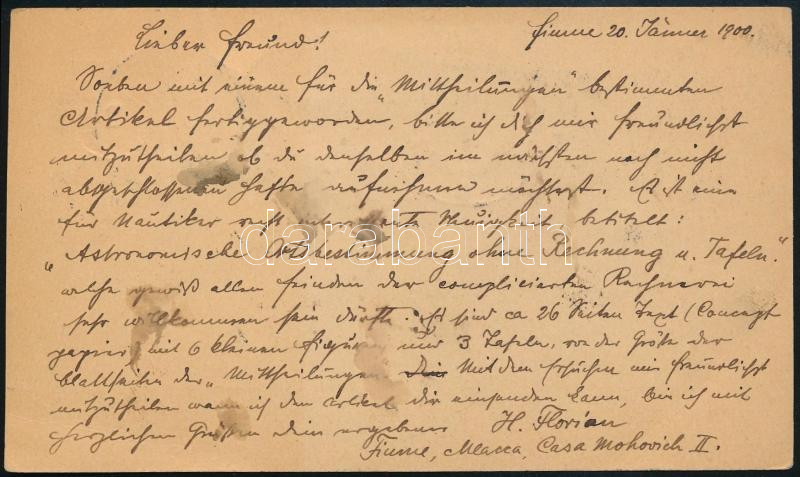 Fiume 20. Jänner 1900.
Lieber Freund!
Soeben mit einem für die „Mittheilungen" bestimmten
Artikel fertiggeworden, bitte ich dich mir freundlichst
mitzutheilen ob du denselben im nächsten noch nicht
abgeschlossenen Hefte aufnehmen möchtest. Es ist eine
für Nautiker recht interessante Neuigkeit betitelt:
„Astronomische Ortsbestimmung ohne Rechnung u. Tafeln."
welche gewiß allen Feinden der complicierten Rechnerei
sehr willkommen sein dürfte. Es sind ca 26 Seiten Text (Concept
papier) mit 6 kleinen Figuren und 3 Tafeln, von der Größe der
Blattseiten der „Mittheilungen". Mit dem Ersuchen mir freundlichst
mitzutheilen wann ich den Artikel dir einsenden kann, bin ich mit
herzlichen Grüßen dein ergebener H. Florian
Fiume, Mlacca, Casa Mohovich II.
darabanth